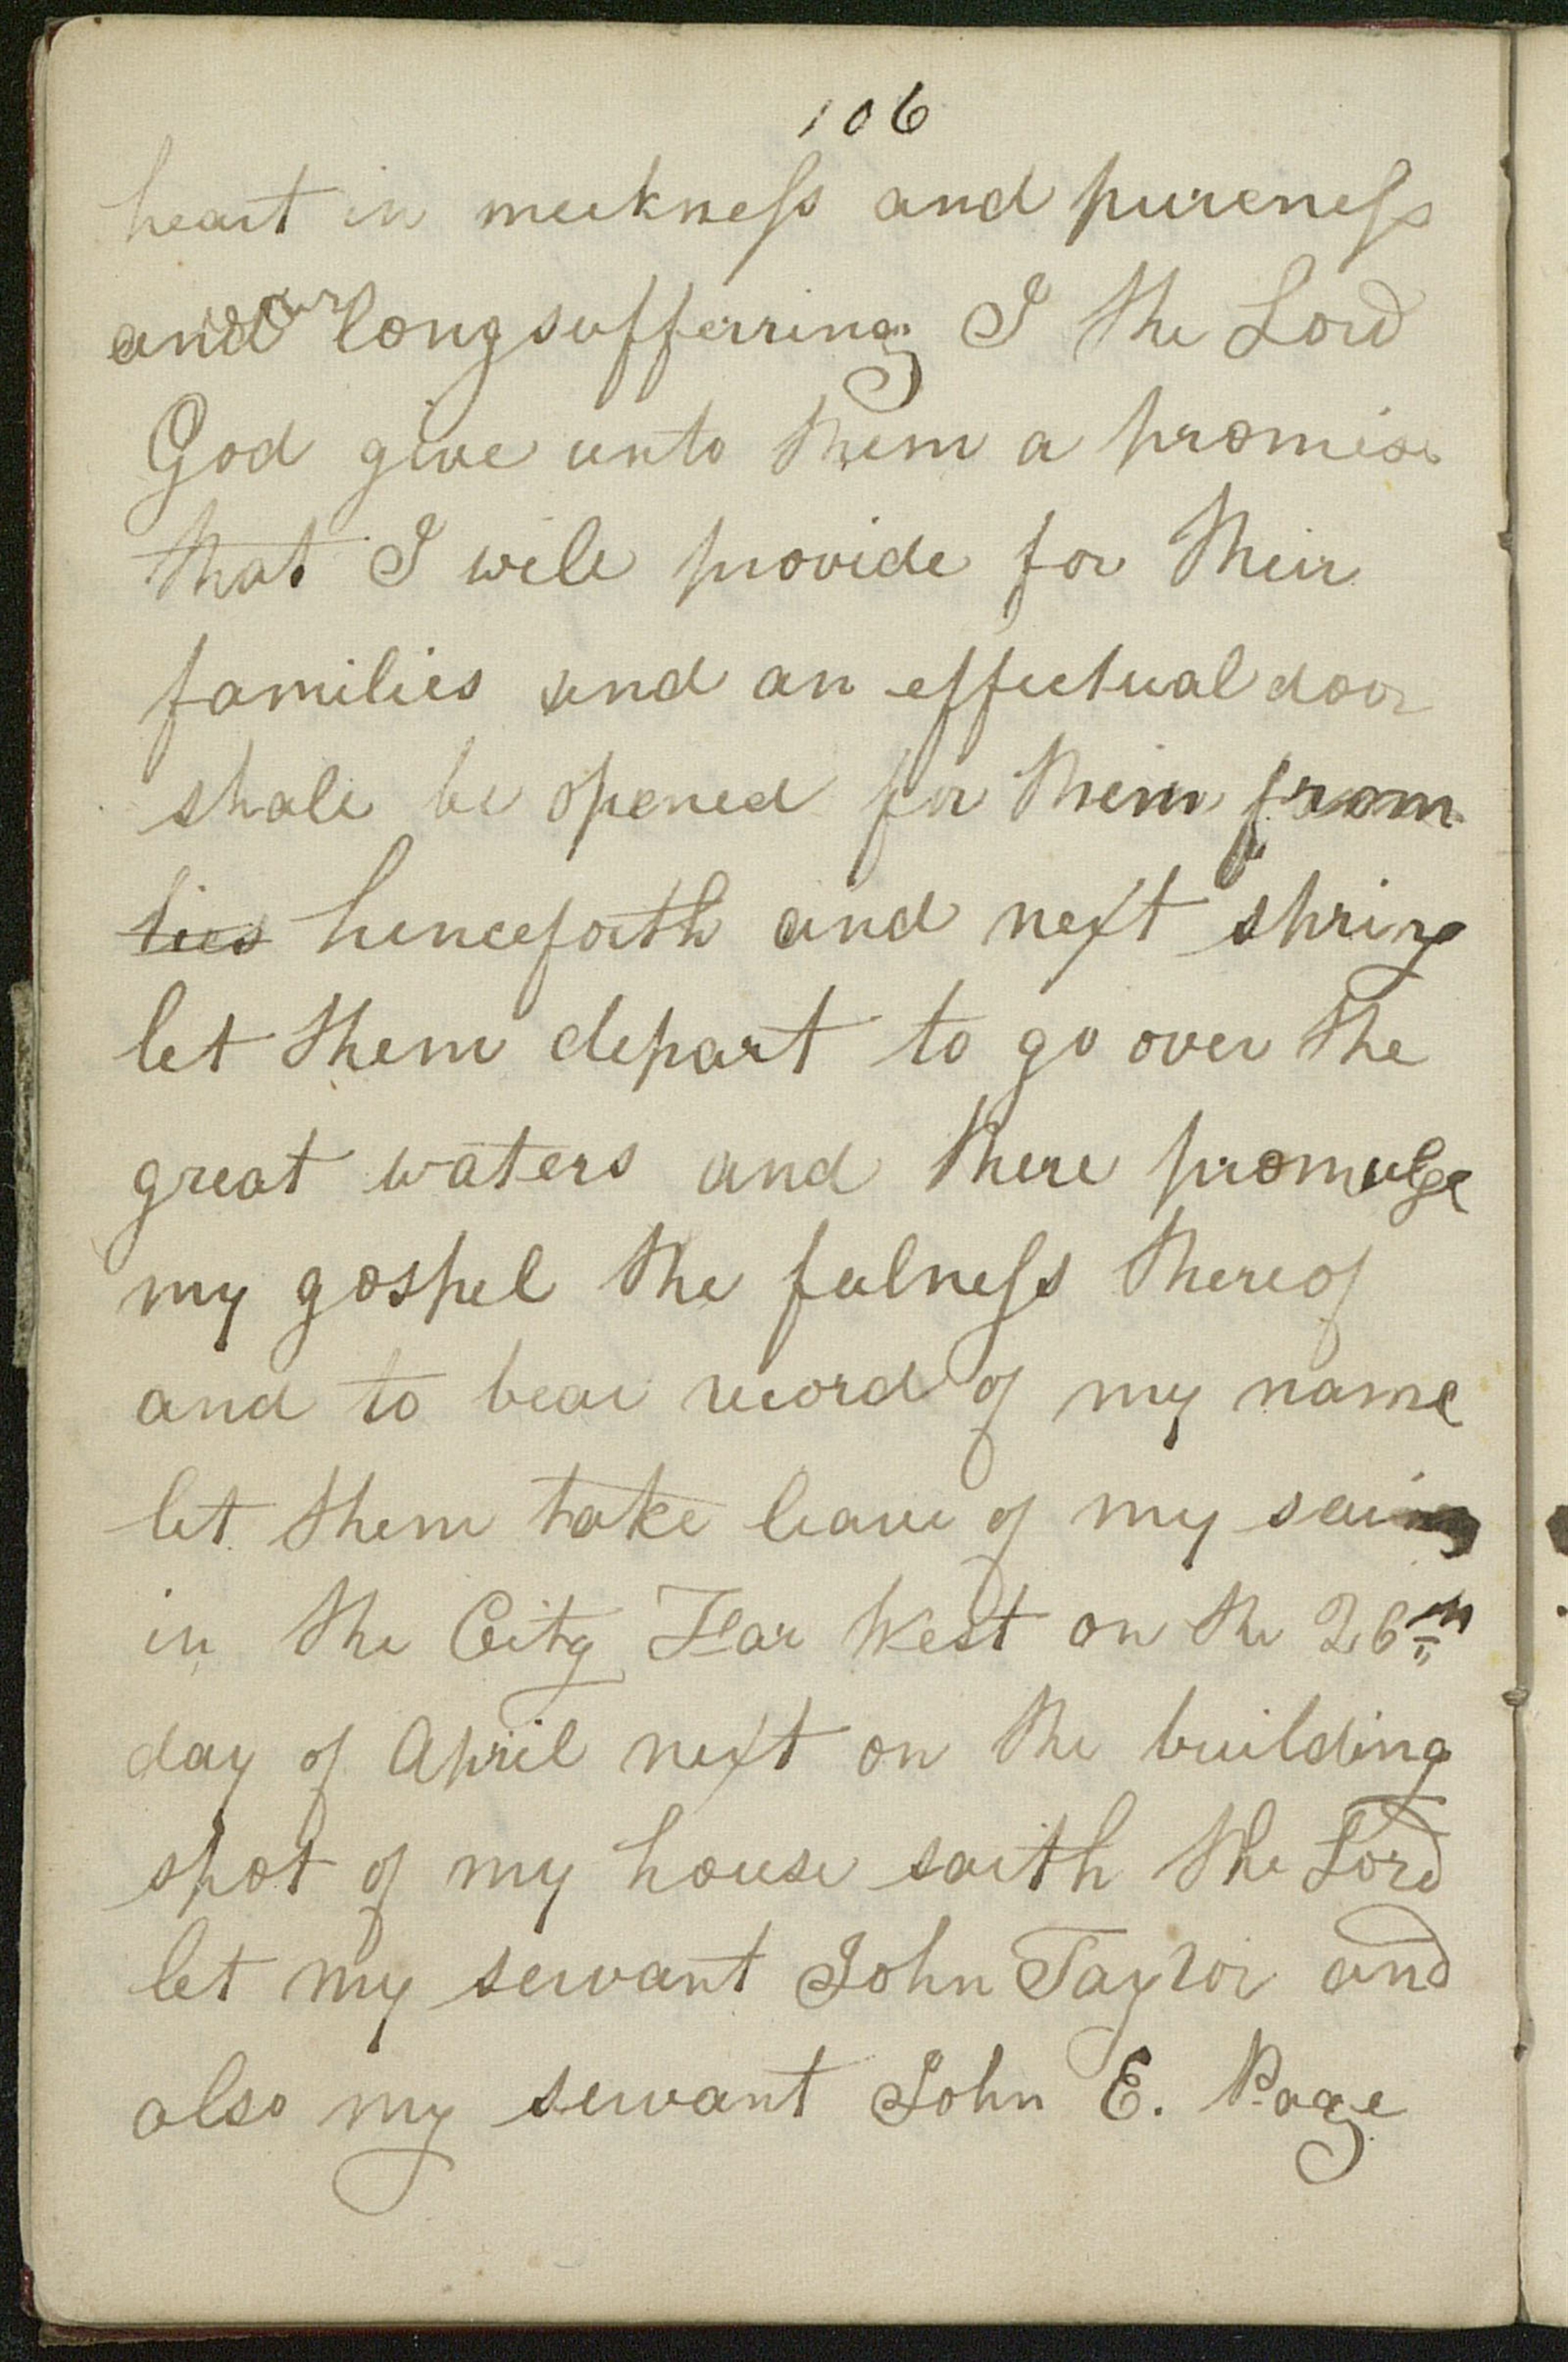 106
heart in meekness and pureness
and longsufferring I the Lord
God give unto them a promise
that I will provide for their
families and an effectual door
shall be opened for them from
ties henceforth and next spring
let them depart to go over the
great waters and there promulge
my gospel the fulness thereof
and to bear record of my name
let them take leave of my
in the City Far West on the 26th
day of April next on the building
spot of my house saith the Lord
let my servant John Taylor and
also my servant John E. Page